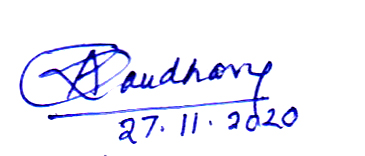 Chaudhary
27.11.2020